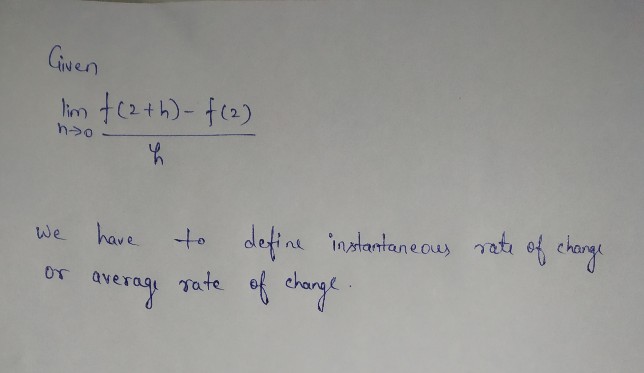 Given
lim f(2+h) - f(2)
h→0
h
We have to define instantaneous rate of change
or average rate of change.